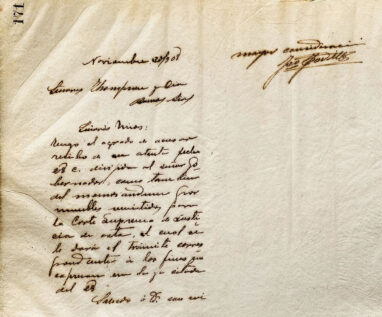 171
Noviembre 20/901
Señores Thompson y Cia
Buenos Aires
Señores mios:
Tengo el agrado de acusar
recibo de su atenta fecha
28 c. dirijida al señor Go
bernador, como tambien
del memorandum
muebles remitidos para
la Corte Suprema de Justi
cia de esta, al cual se
le dará el trámite corres
pondiente á los fines que
expresan en la ya citada
del 28
Saludo á U. con mi
mayor consideraci